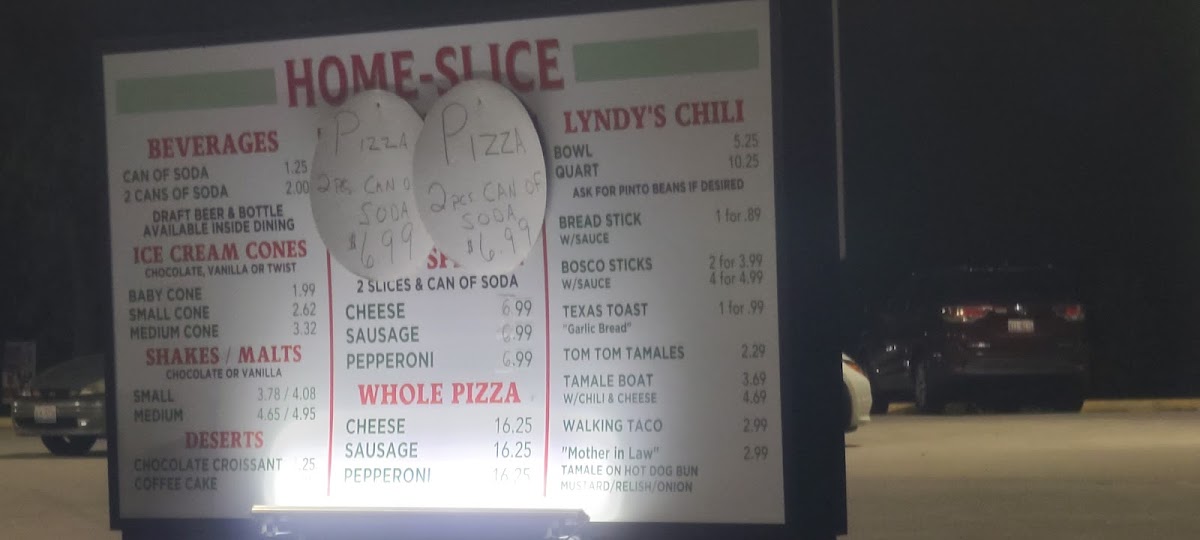 HOME-SLICE
BEVERAGES
CAN OF SODA 1.25
2 CANS OF SODA 2.00
DRAFT BEER & BOTTLE
AVAILABLE INSIDE DINING
ICE CREAM CONES
CHOCOLATE, VANILLA OR TWIST
BABY CONE 1.99
SMALL CONE 2.62
MEDIUM CONE 3.32
SHAKES / MALTS
CHOCOLATE OR VANILLA
SMALL 3.78 / 4.08
MEDIUM 4.65 / 4.95
DESERTS
CHOCOLATE CROISSANT
COFFEE CAKE
PIZZA
2 pcs CAN O
SODA
$6.99
PIZZA
2 pcs CAN OF
SODA
$6.99
2 SLICES & CAN OF SODA
CHEESE 6.99
SAUSAGE 6.99
PEPPERONI 6.99
WHOLE PIZZA
CHEESE 16.25
SAUSAGE 16.25
PEPPERONI 16.25
LYNDY'S CHILI
BOWL 5.25
QUART 10.25
ASK FOR PINTO BEANS IF DESIRED
BREAD STICK 1 for .89
W/SAUCE
BOSCO STICKS 2 for 3.99
W/SAUCE 4 for 4.99
TEXAS TOAST 1 for .99
"Garlic Bread"
TOM TOM TAMALES 2.29
TAMALE BOAT 3.69
W/CHILI & CHEESE 4.69
WALKING TACO 2.99
"Mother in Law" 2.99
TAMALE ON HOT DOG BUN
MUSTARD/RELISH/ONION